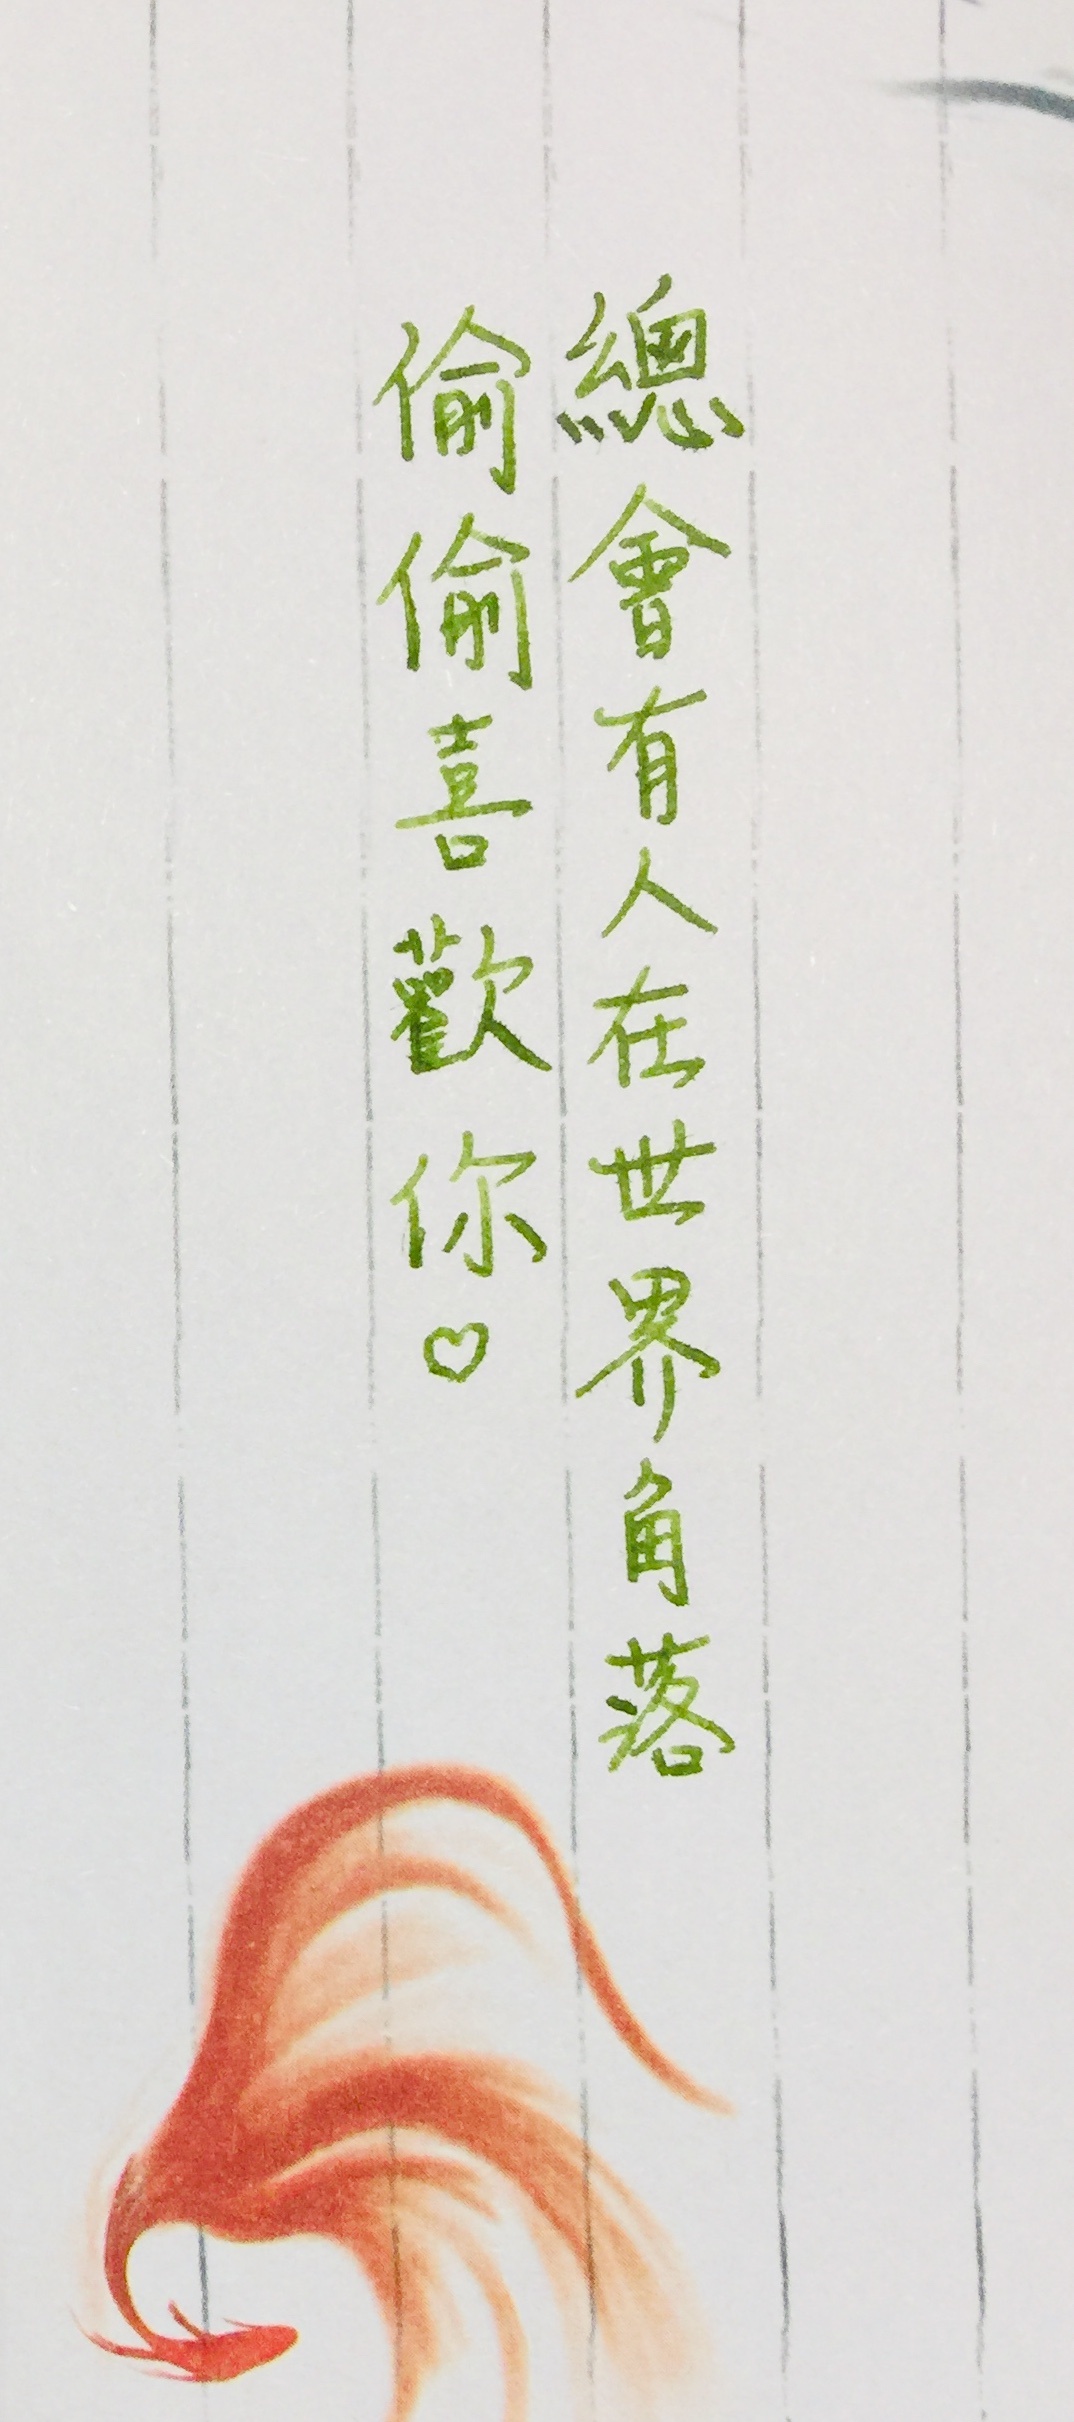 總會有人在世界角落
偷偷喜歡你♡